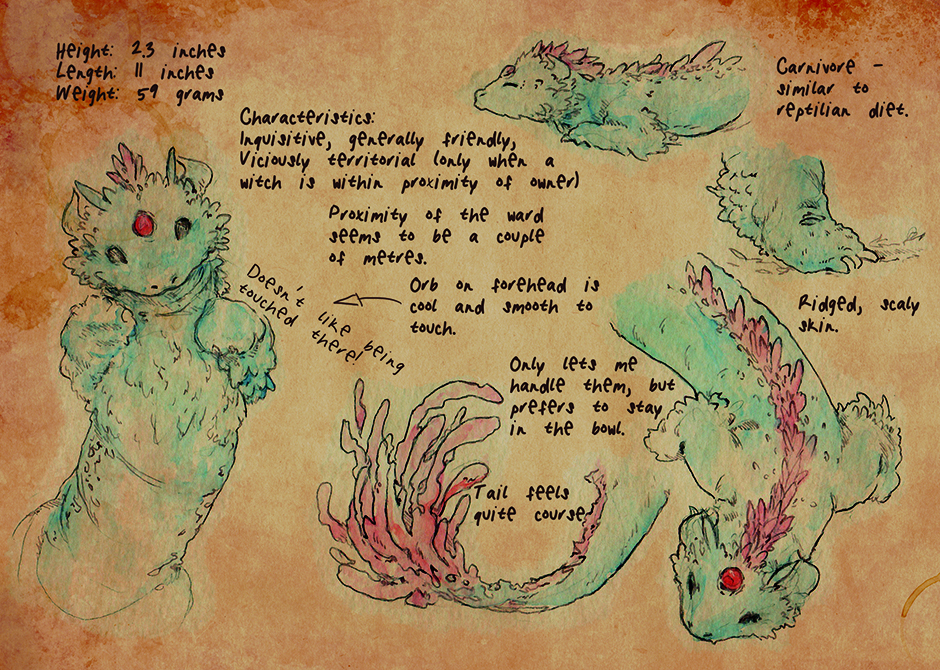 Height: 2.3 inches
Length: 11 inches
Weight: 59 grams
Characteristics:
Inquisitive, generally friendly,
Viciously territorial (only when a
witch is within proximity of owner)
Proximity of the ward
seems to be a couple
of metres.
Orb on forehead is
cool and smooth to
touch.
Doesn't like being
touched there!
Only lets me
handle them, but
prefers to stay
in the bowl.
Tail feels
quite course
Carnivore -
similar to
reptilian diet.
Ridged, scaly
skin.